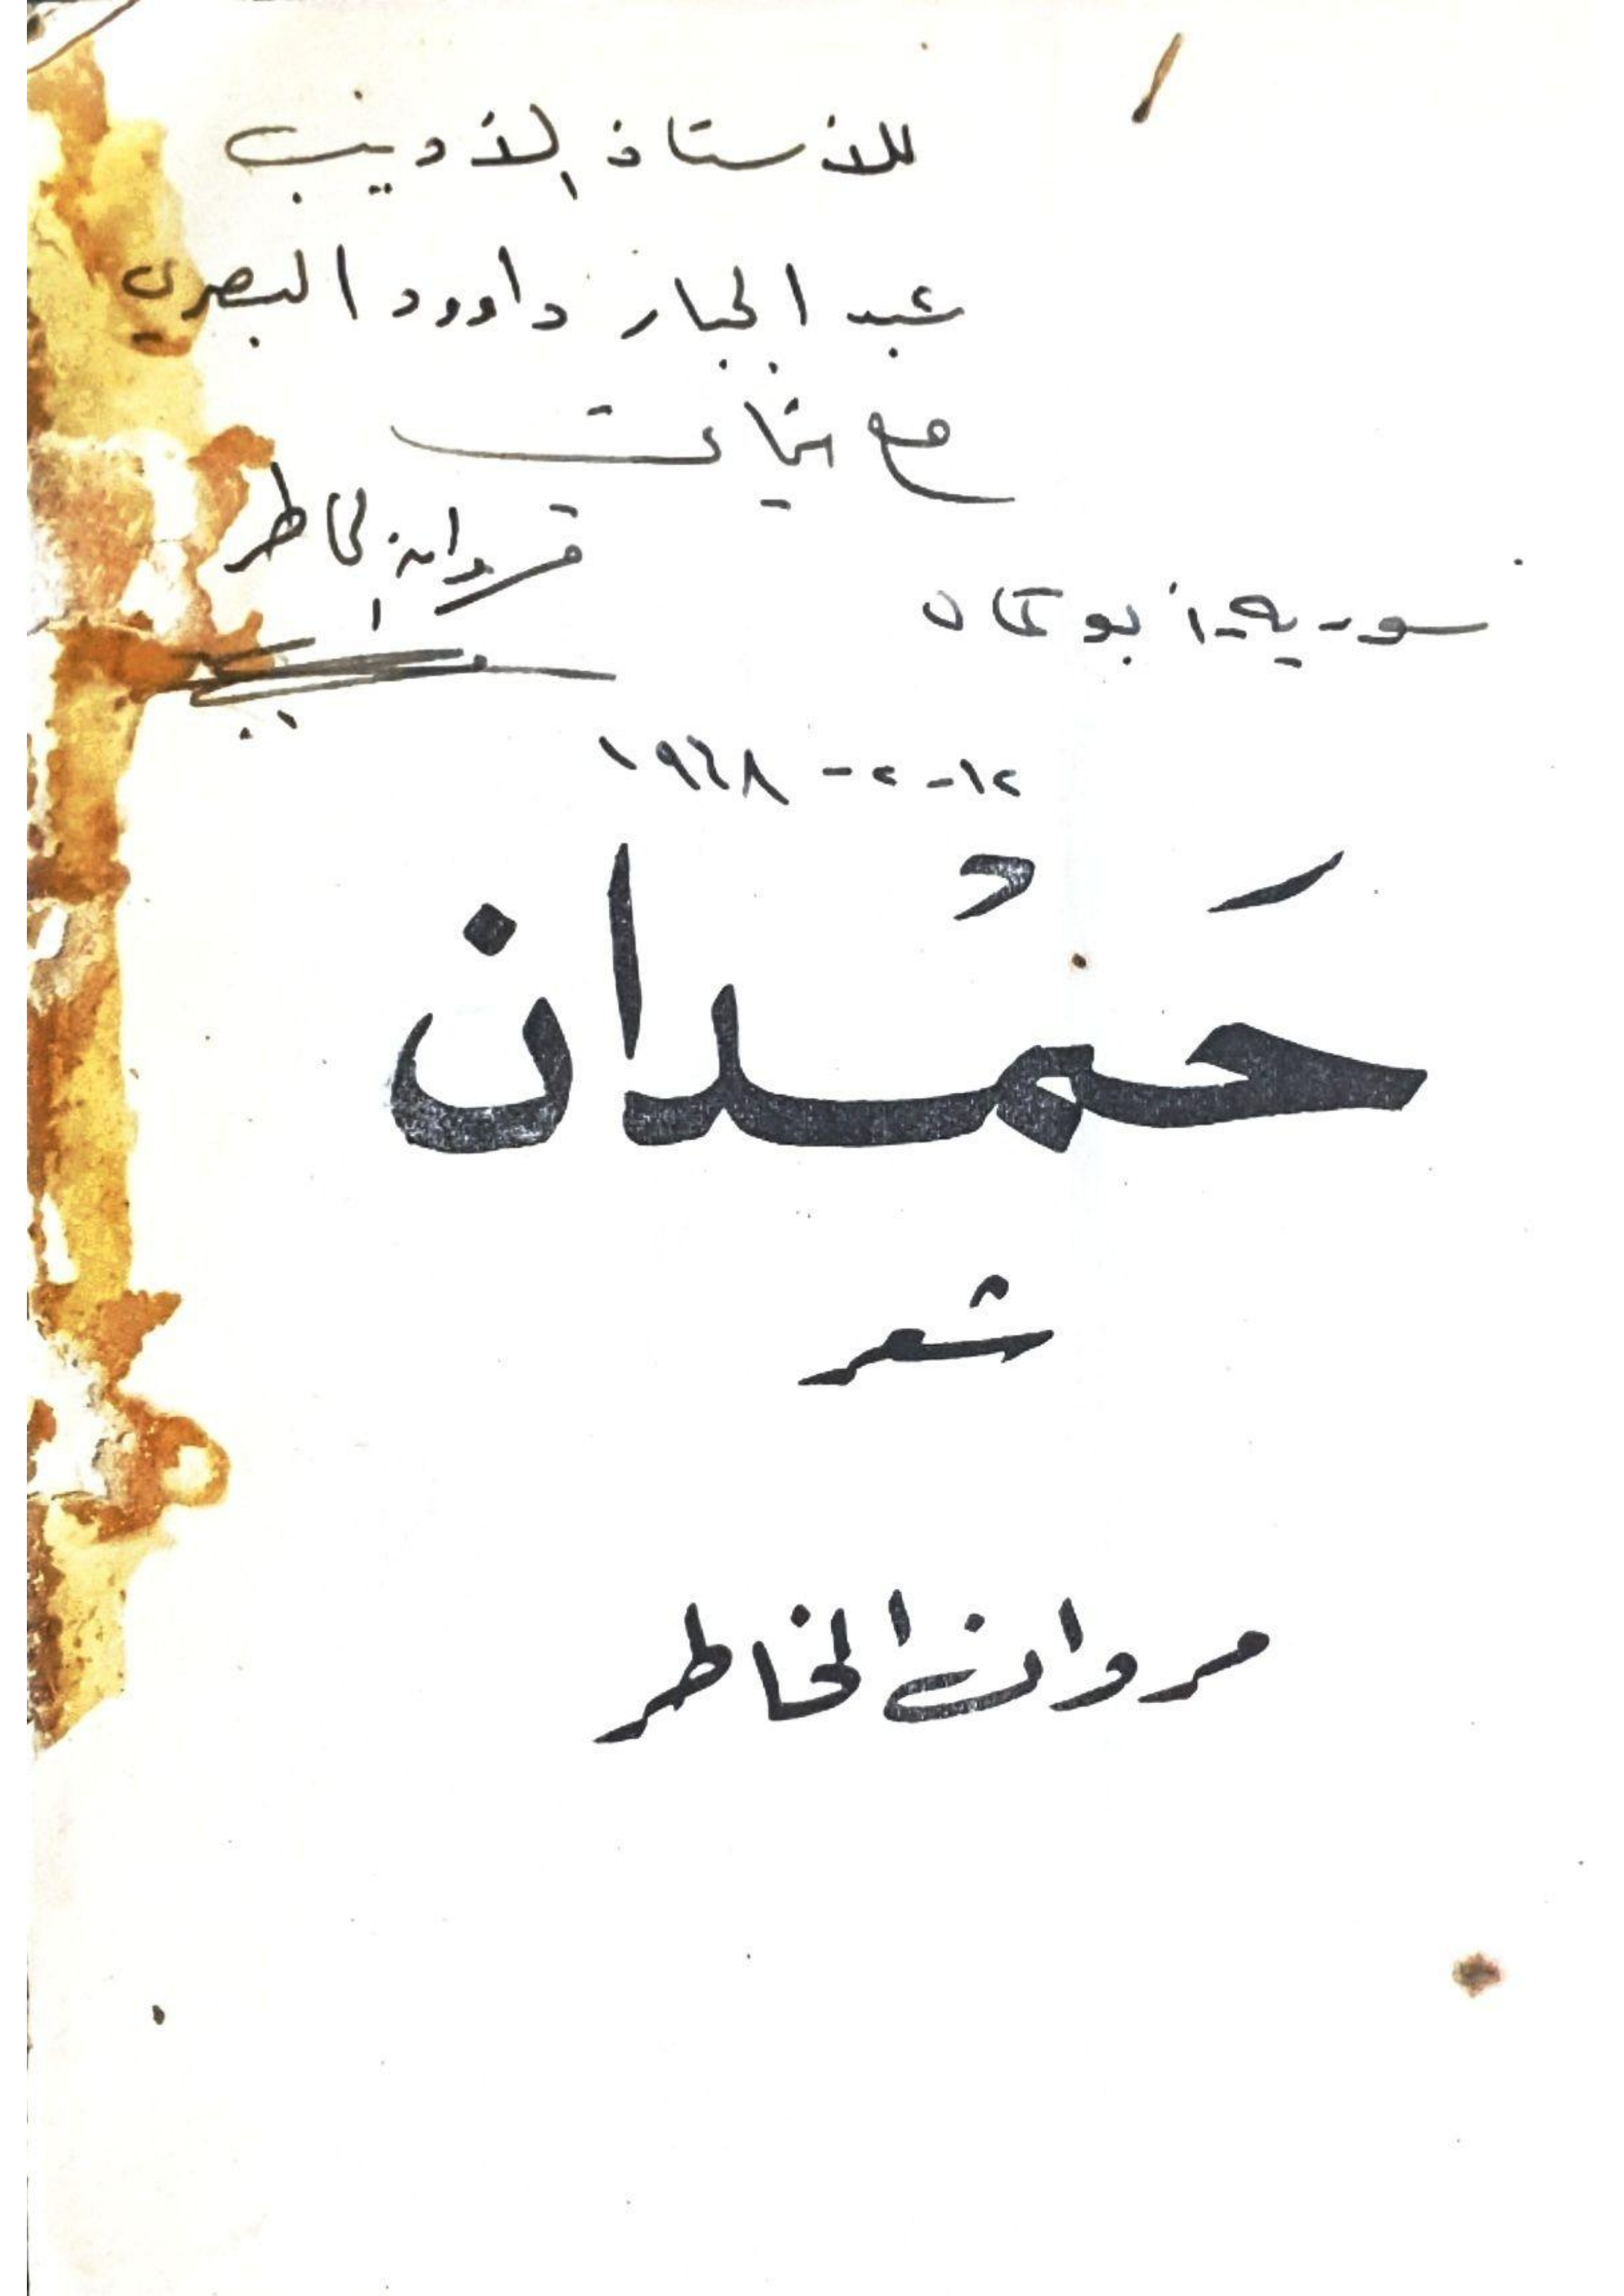 للأستاذ الأديب
عبد الجبار داوود البصري
مع تحياتي
مروان الخاطر
سورية - أبو كمال
١٢-٢-١٩٦٨
حَمْدان
شعر
مروان الخاطر